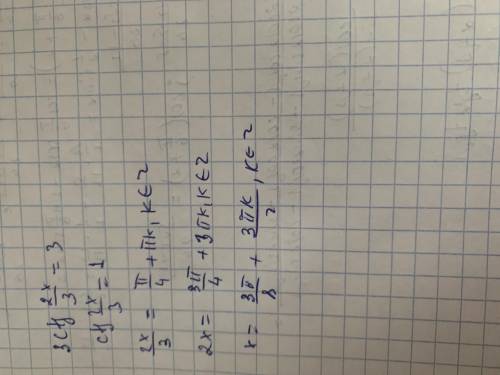 3ctg 2x/3 = 3
ctg 2x/3 = 1
2x/3 = π/4 + πk, k ∈ Z
2x = 3π/4 + 3πk, k ∈ Z
x = 3π/8 + 3πk/2, k ∈ Z